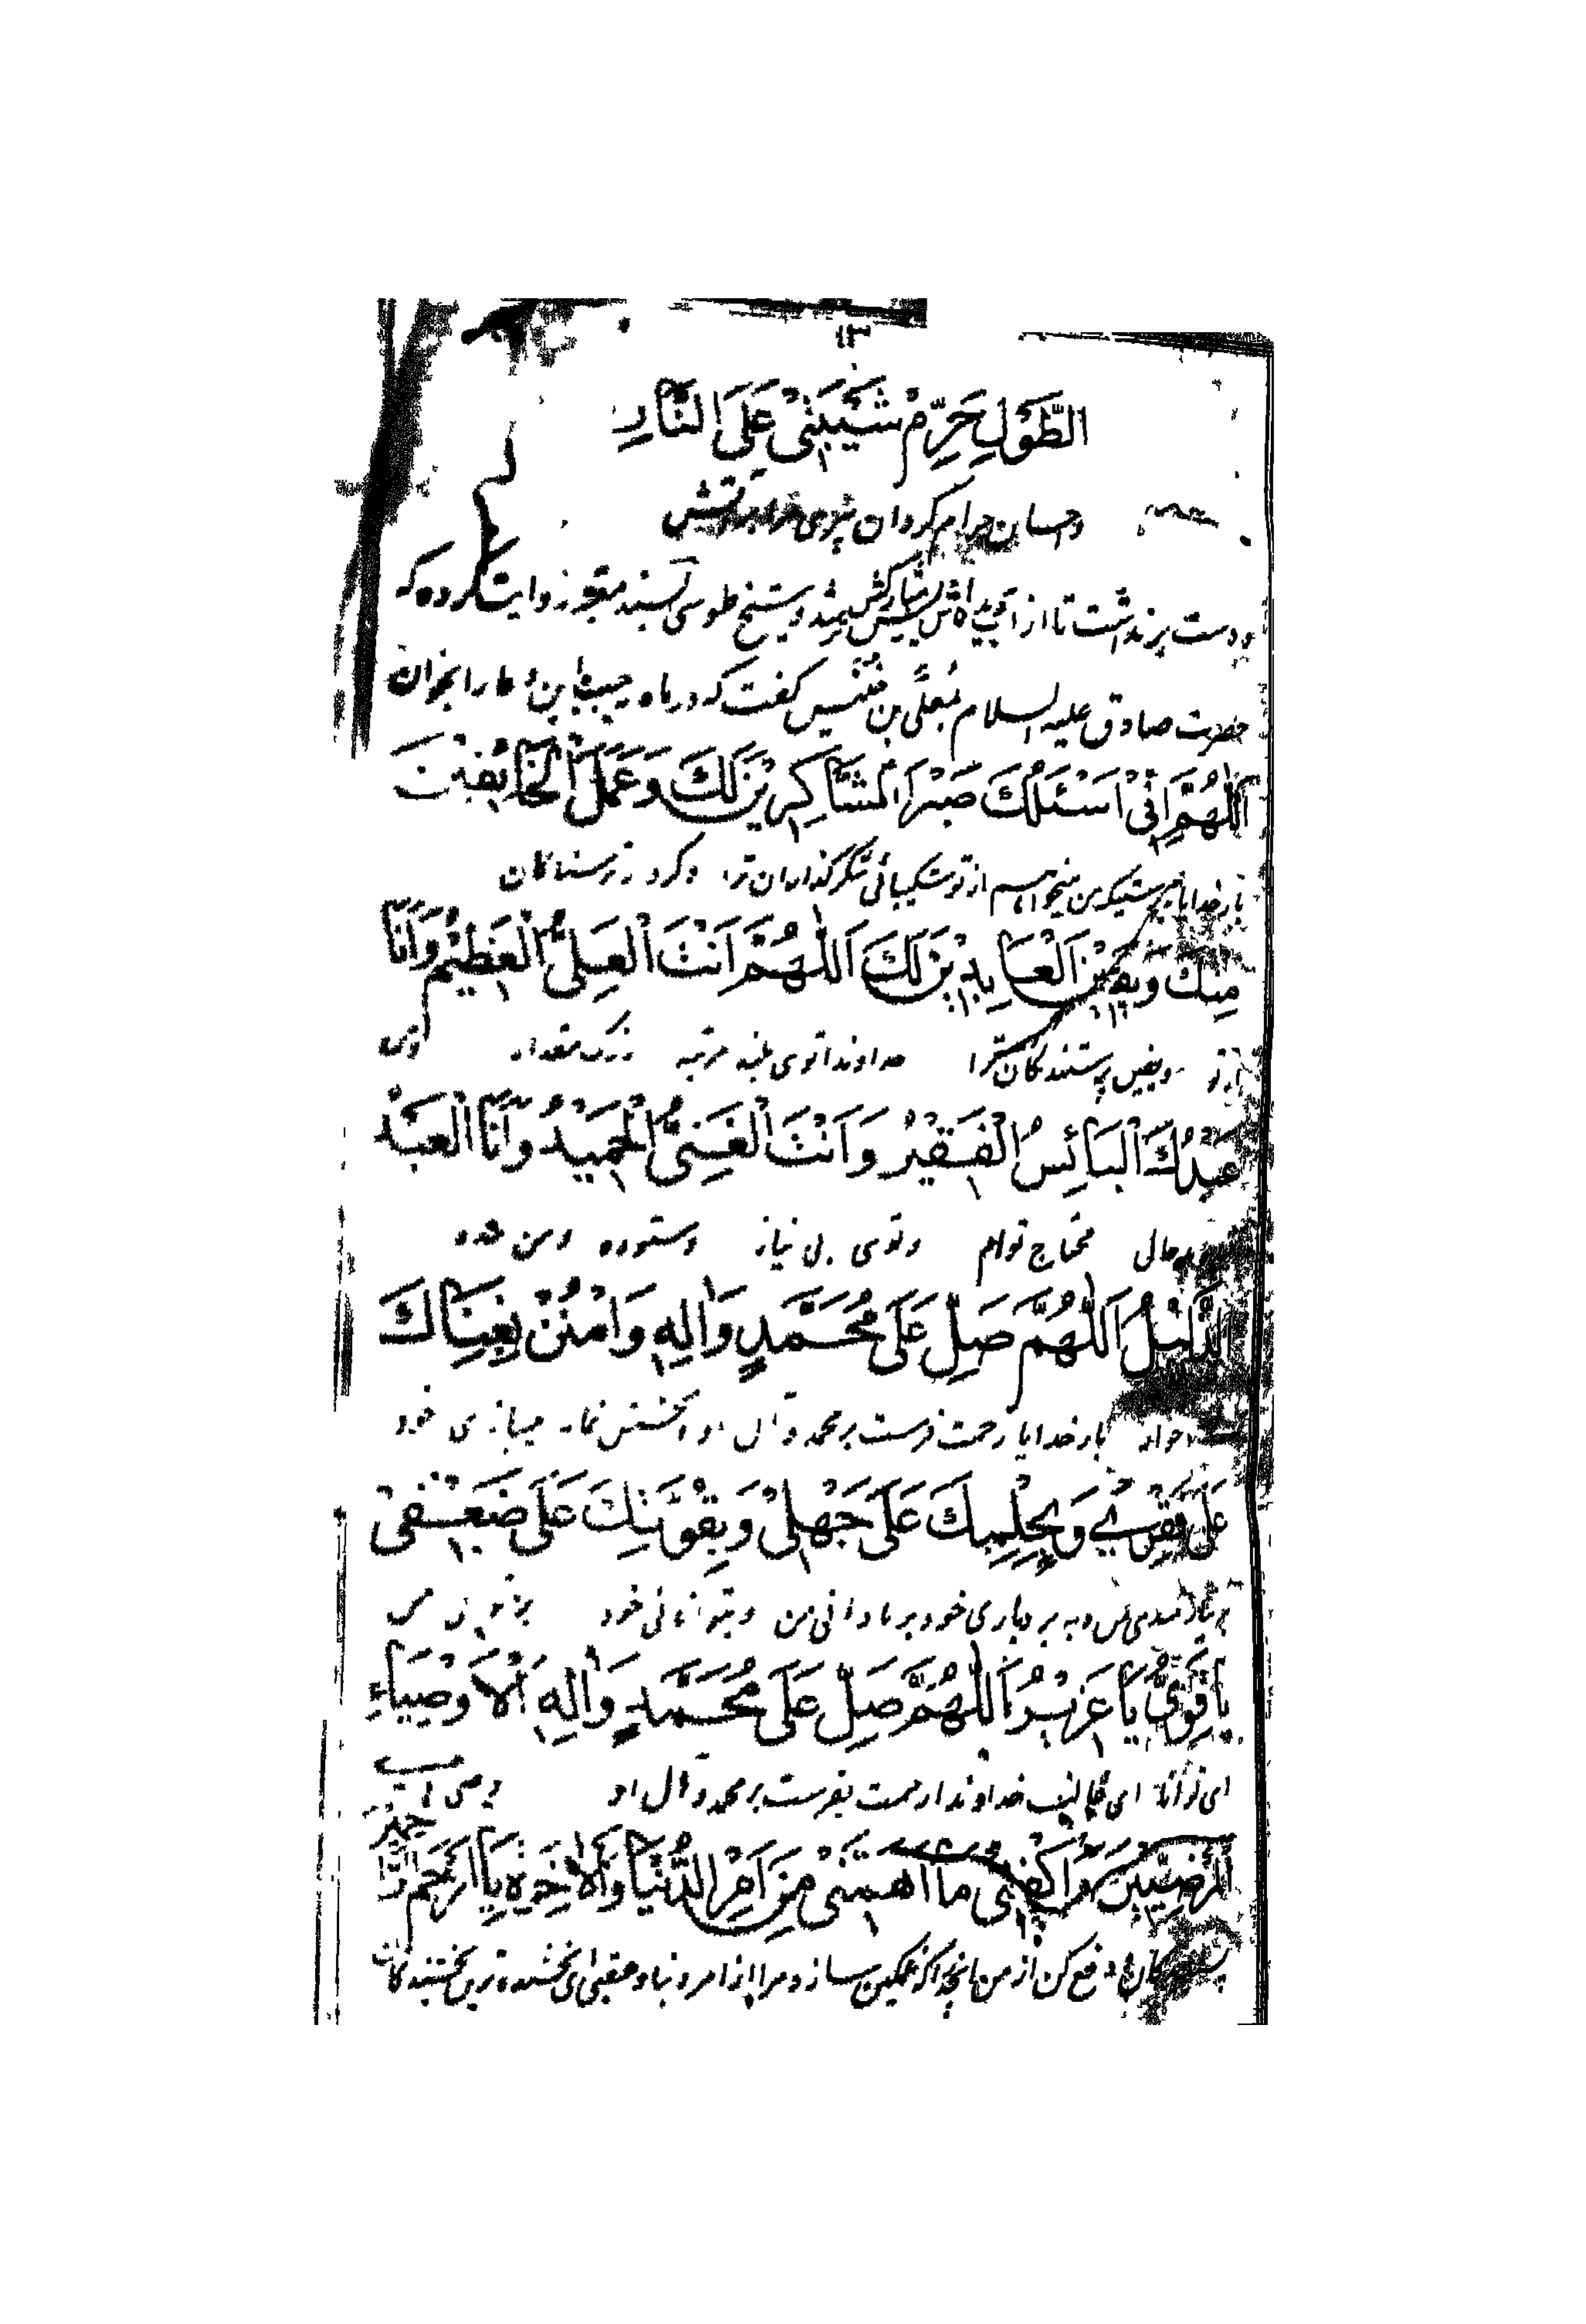 ۱۳
الطَّوْلِ حَرِّمْ شَيْبَتِىْ عَلَى النَّارِ
واحسان حرام گردان پیری مرا بر آتش
و دست برنداشت تا از آب دیده اش ریش مبارکش تر شد و شیخ طوسی بسند معتبر روایت کرده که
حضرت صادق علیه السلام بمُعلَّی بن خُنَیس گفت که در ماه رجب این دعا را بخوان
اَللّٰهُمَّ اِنِّىْ اَسْئَلُكَ صَبْرَ الشَّاكِرِيْنَ لَكَ وَعَمَلَ الْخَائِفِيْنَ
بار خدایا بدرستیکه من میخواهم از تو شکیبائی شکر گذاران ترا و کردار ترسندگان
مِنْكَ وَيَقِيْنَ الْعَابِدِيْنَ لَكَ اَللّٰهُمَّ اَنْتَ الْعَلِىُّ الْعَظِيْمُ وَاَنَا
از تو و یقین پرستندگان ترا خداوندا توی بلند مرتبه بزرگ مقدار و من
عَبْدُكَ الْبَائِسُ الْفَقِيْرُ وَاَنْتَ الْغَنِىُّ الْحَمِيْدُ وَاَنَا الْعَبْدُ
حال محتاج توام و توی بی نیاز و ستوده و من بنده
الذَّلِيْلُ اَللّٰهُمَّ صَلِّ عَلٰى مُحَمَّدٍ وَاٰلِهٖ وَامْنُنْ بِغِنَاكَ
خوار بار خدایا رحمت فرست بر محمد و آل او و بخشش نما به بی نیازی خود
عَلٰى فَقْرِىْ وَبِحِلْمِكَ عَلٰى جَهْلِىْ وَبِقُوَّتِكَ عَلٰى ضَعْفِىْ
من و به بردباری خود بر نادانی من و بتوانائی خود بر من
يَا قَوِىُّ يَا عَزِيْزُ اَللّٰهُمَّ صَلِّ عَلٰى مُحَمَّدٍ وَاٰلِهِ الْاَوْصِيَاءِ
ای توانا ای غالب خداوندا رحمت بفرست بر محمد و آل او
الْمَرْضِيِّيْنَ وَاكْفِنِىْ مَا اَهَمَّنِىْ مِنْ اَمْرِ الدُّنْيَا وَالْاٰخِرَةِ يَا اَرْحَمَ الرَّاحِمِيْنَ
و دفع کن از من آنچه غمگین سازد مرا از امر دنیا و عقبی ای بخشنده ترین بخشندگان